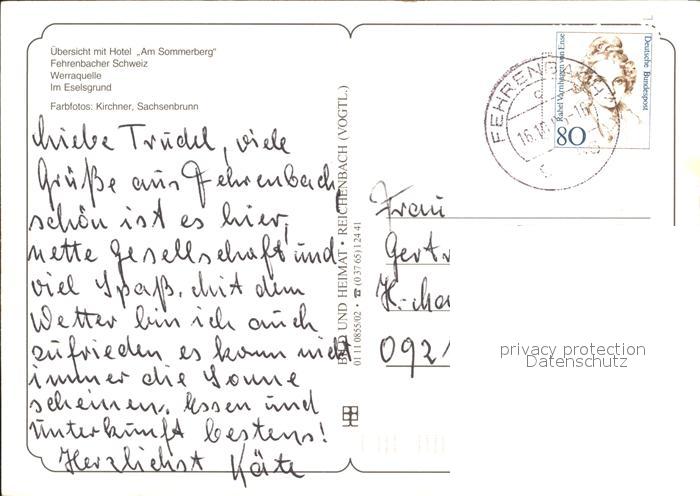 Übersicht mit Hotel „Am Sommerberg"
Fehrenbacher Schweiz
Werraquelle
Im Eselsgrund
Farbfotos: Kirchner, Sachsenbrunn
Liebe Trudel, viele
Grüße aus Fehrenbach,
schön ist es hier,
nette Gesellschaft und
viel Spaß. Mit dem
Wetter bin ich auch
zufrieden es kann nicht
immer die Sonne
scheinen. Essen und
Unterkunft bestens!
Herzlichst Käte
BILD UND HEIMAT • REICHENBACH (VOGTL.)
01 11 0855/02 • ☎ (0 37 65) 124 41
FEHRENBACH
Rahel Varnhagen von Ense
Deutsche Bundespost
80
Frau
Gertr
092
privacy protection
Datenschutz